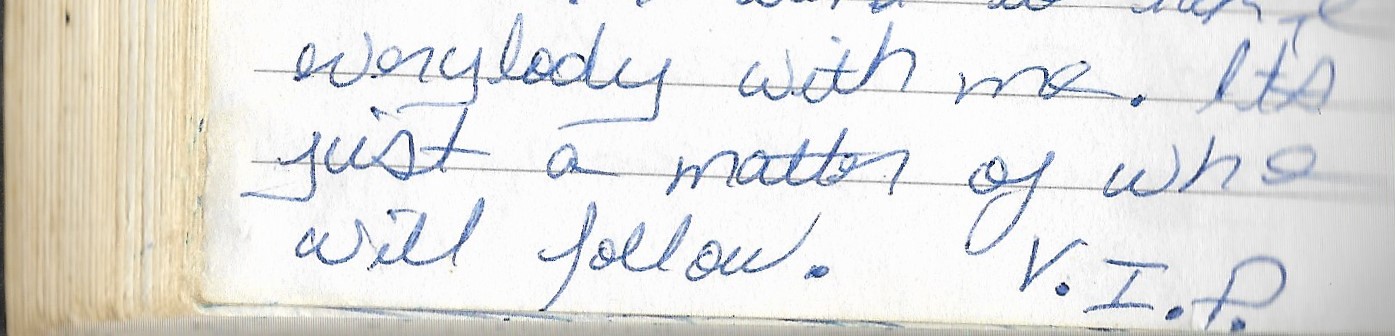 everybody with me. Its
just a matter of who
will follow. V.I.P.